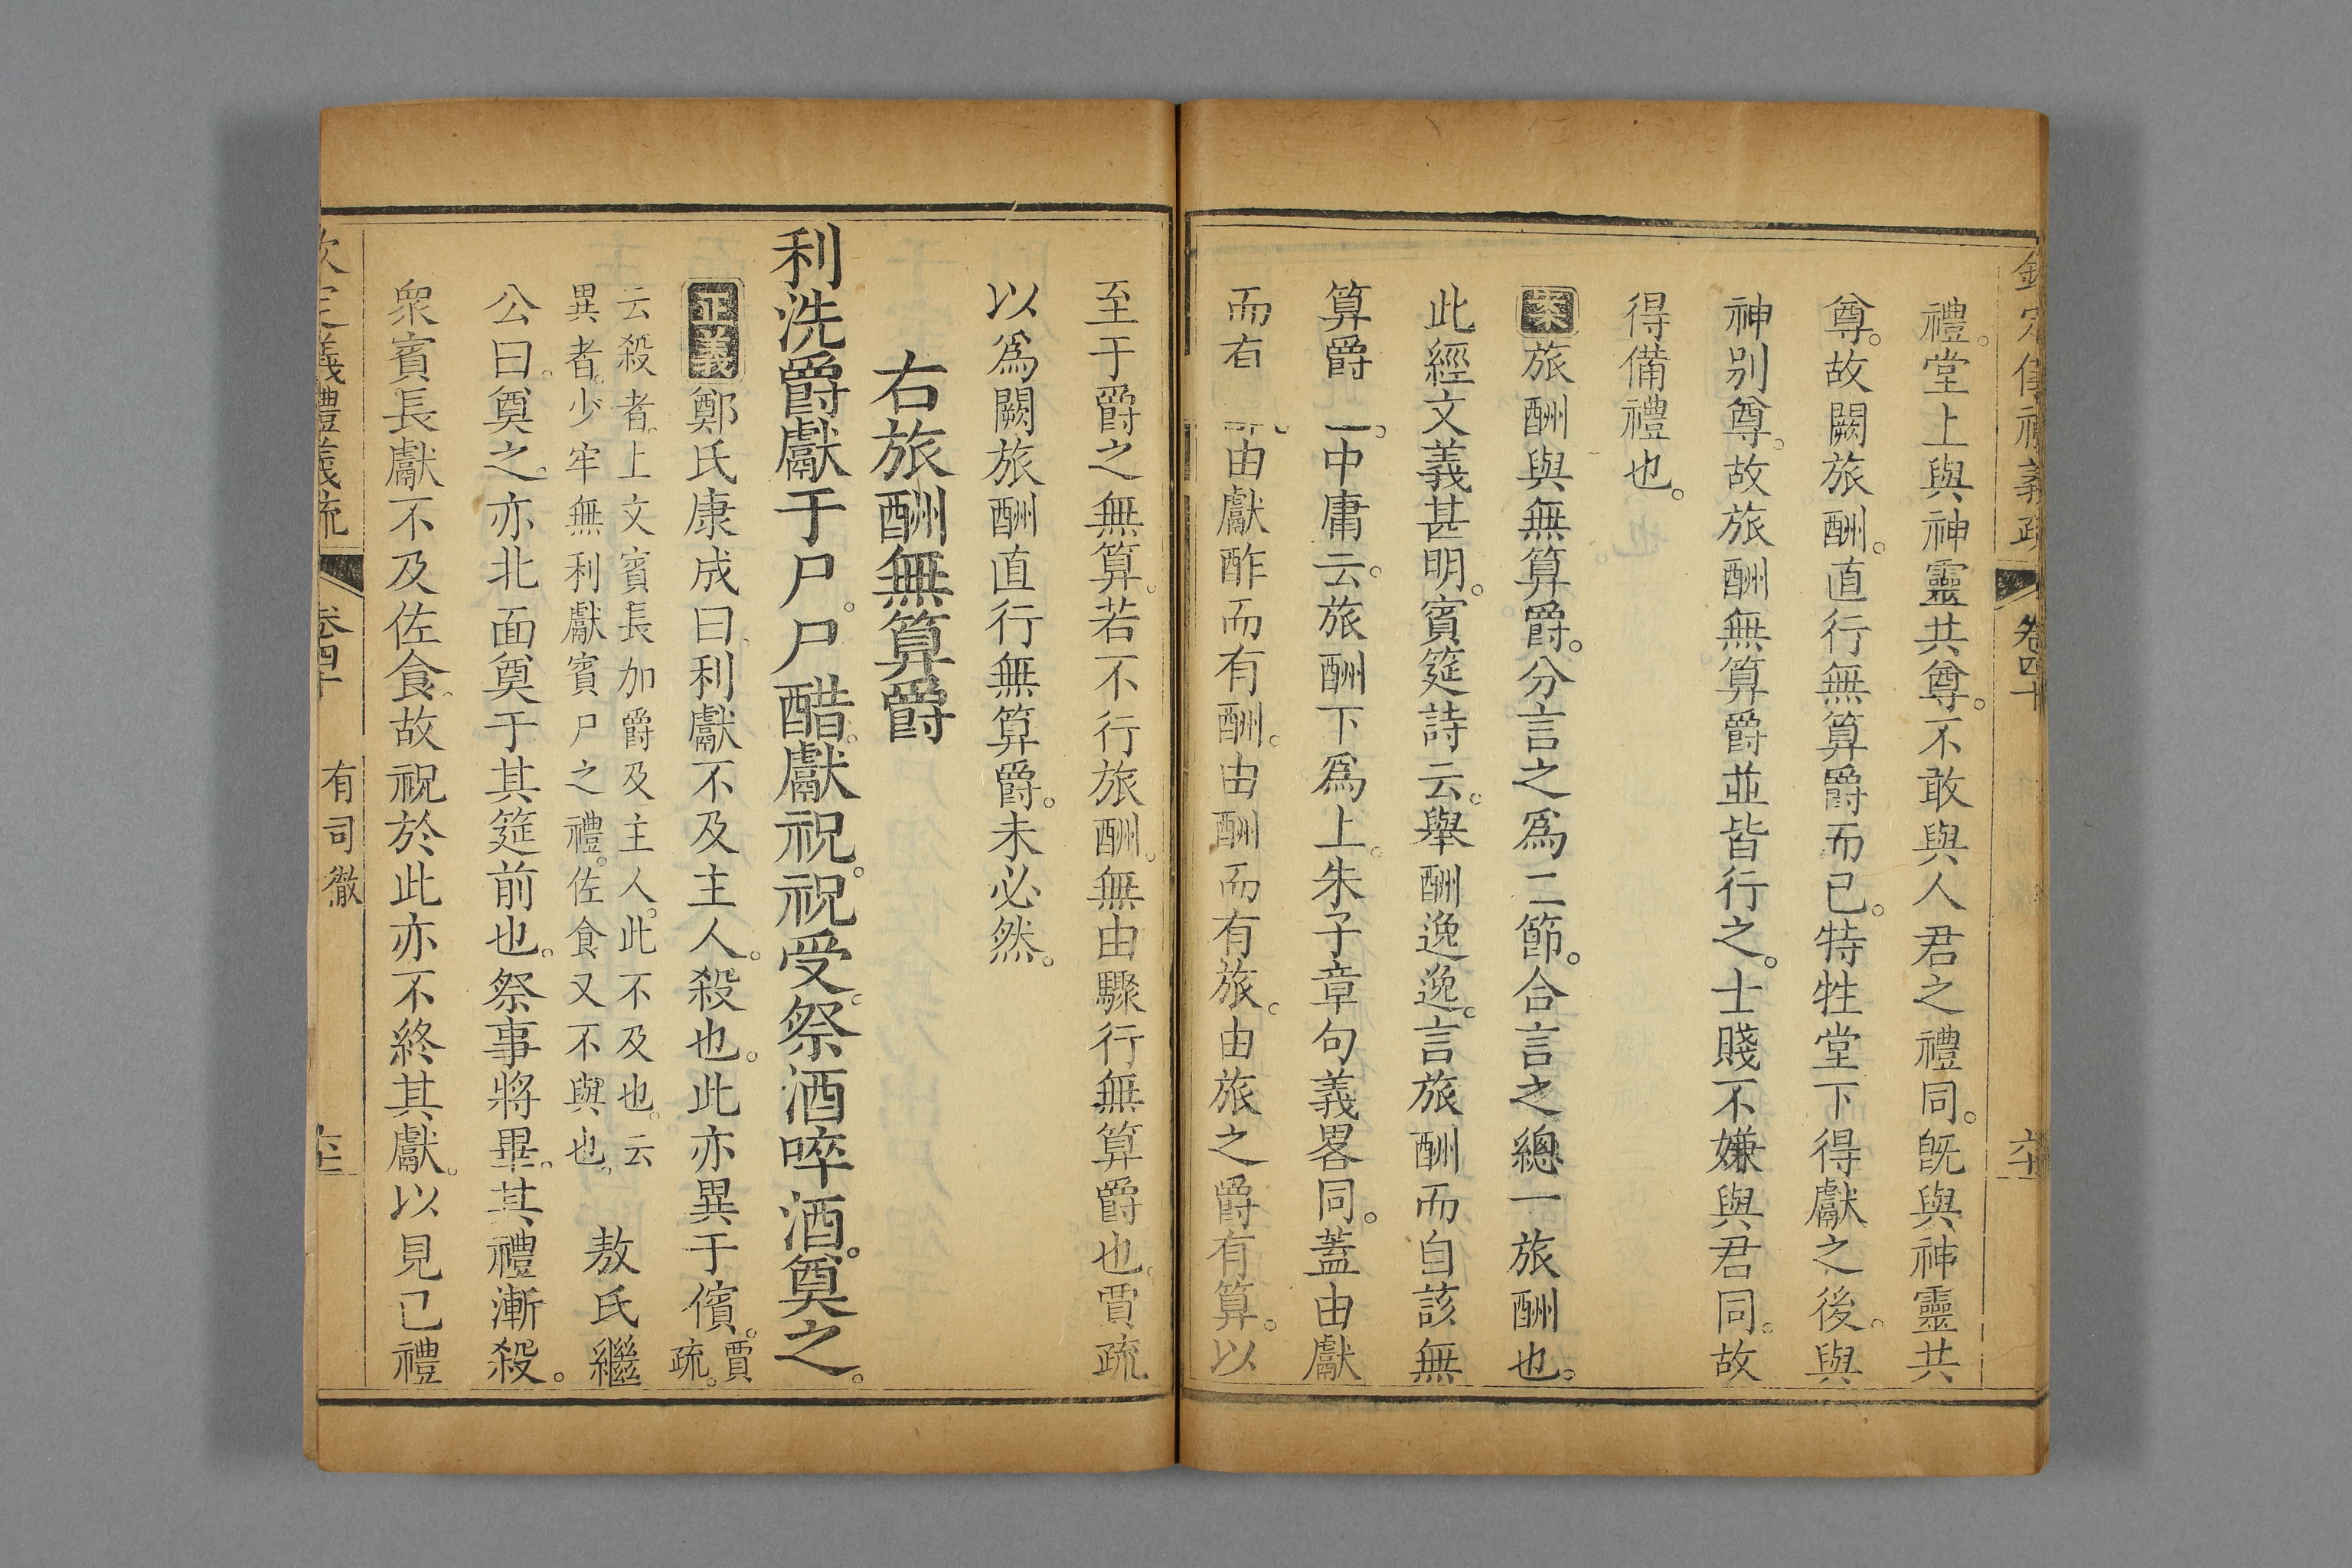 欽定儀禮義疏 卷四十 六十
禮。堂上與神靈共尊。不敢與人君之禮同。旣與神靈共
尊。故闕旅酬。直行無算爵而已。特牲堂下得獻之後。與
神别尊。故旅酬無算爵並皆行之。士賤不嫌與君同。故
得備禮也。
案旅酬與無算爵。分言之爲二節。合言之總一旅酬也。
此經文義甚明。賓筵詩云。舉酬逸逸。言旅酬而自該無
算爵 中庸云。旅酬下爲上。朱子章句義畧同。蓋由獻
而有 由獻酢而有酬。由酬而有旅。由旅之爵有算。以
至于爵之無算。若不行旅酬。無由驟行無算爵也。賈疏
以爲闕旅酬直行無算爵。未必然。
右旅酬無算爵
利洗爵獻于尸。尸醋。獻祝。祝受。祭酒啐酒。奠之。
正義鄭氏康成曰、利獻不及主人。殺也。此亦異于儐。賈疏。
云殺者。上文賓長加爵及主人。此不及也。云
異者。少牢無利獻賓尸之禮。佐食又不與也。 敖氏繼
公曰。奠之。亦北面奠于其筵前也。祭事將畢。其禮漸殺。
衆賓長獻不及佐食。故祝於此亦不終其獻。以見已禮
欽定儀禮義疏 卷四十 有司徹